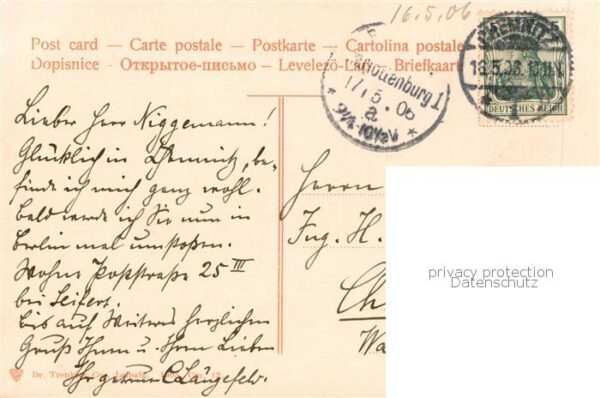 16.5.06
Post card – Carte postale – Postkarte – Cartolina postale
Dopisnice – Открытое-письмо – Levelező-Lap – Briefkaart
CHEMNITZ
16.5.06.
DEUTSCHES REICH
5
Charlottenburg 1
17.5.06
a
9½-10½V
Lieber Herr Niggemann!
Glücklich in Chemnitz, be-
finde ich mich ganz wohl.
Bald werde ich Sie nun in
Berlin mal umstoßen.
Wohne Poststraße 25 III
bei Seifert.
Bis auf Weiteres herzlichen
Gruß Ihnen u. Ihren Lieben
Ihr getreuer C. Längefeld.
Herrn
Ing. H.
Ch
Wa
privacy protection
Datenschutz
Dr. Trenkler Co., Leipzig.